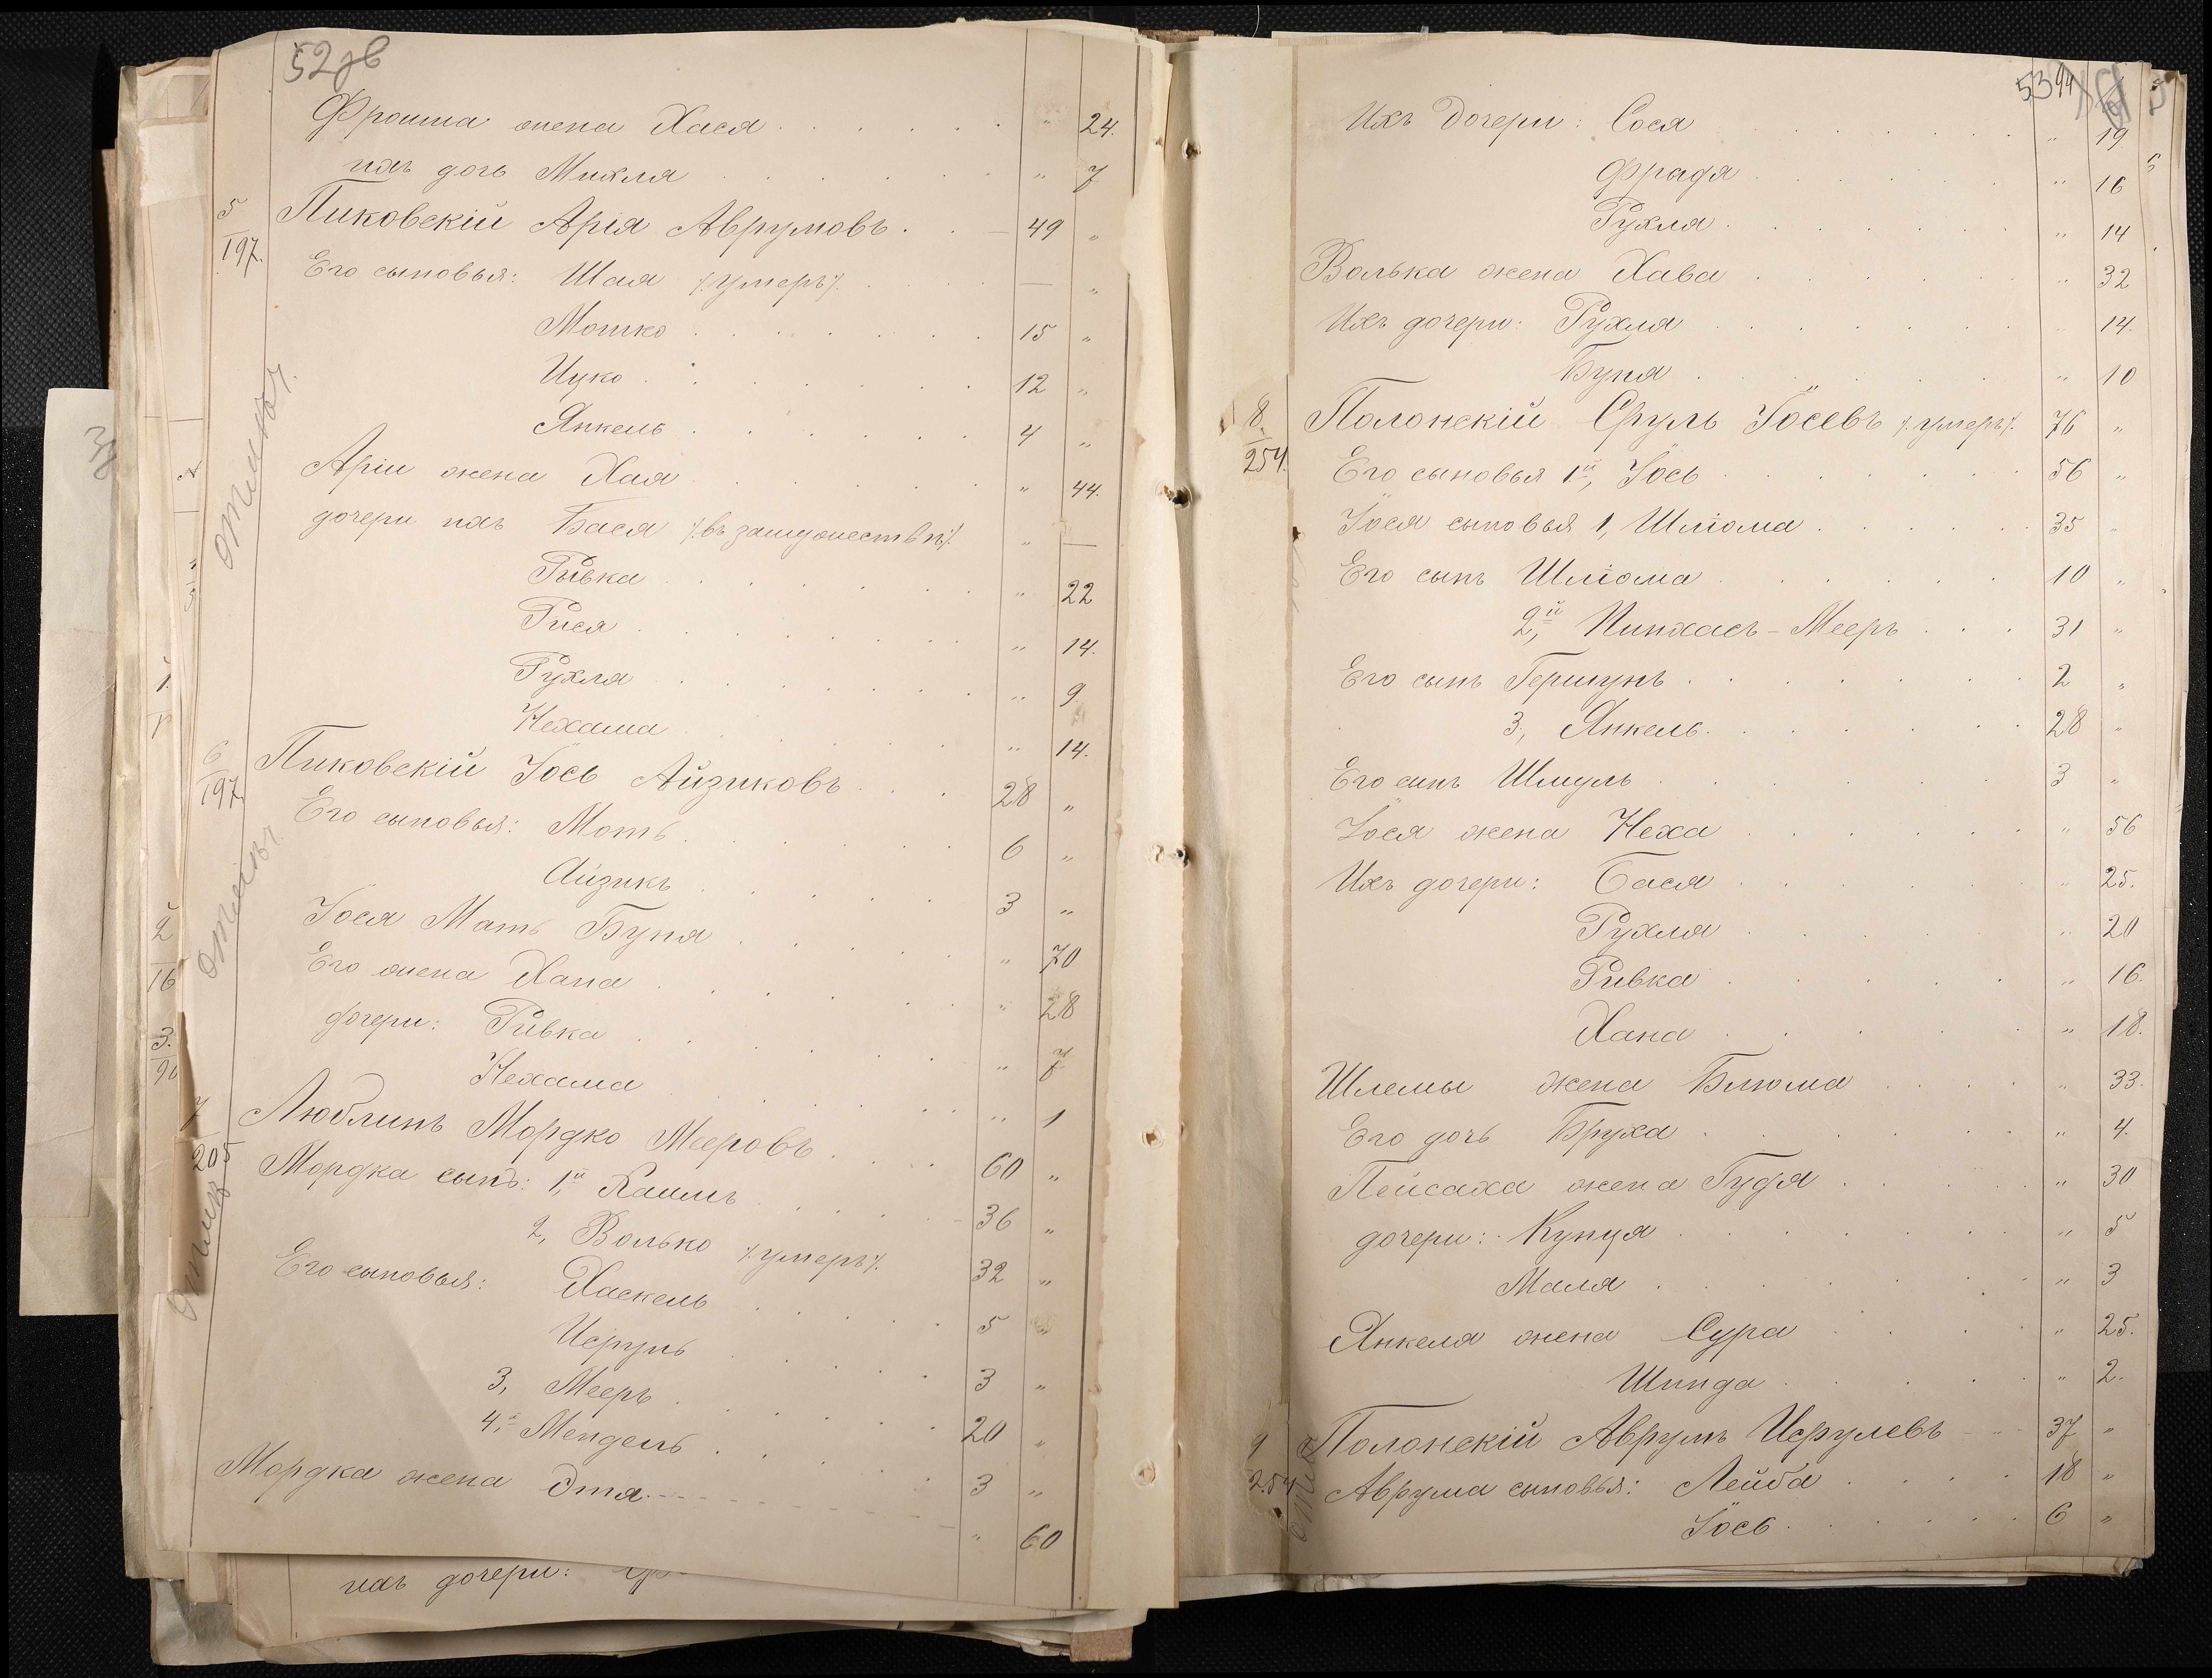 52 об
Фроима жена Хася . . . . . . " 24.
ихъ дочь Михля . . . . . . " 7
5/197. Пиковскій Арія Аврумовъ . . — 49 "
Его сыновья: Шая /:умеръ:/. . . . . — "
Мошко . . . . . . . 15 "
Ицко . . . . . . . 12 "
Янкель . . . . . . 4 "
Аріи жена Хая . . . . . . " 44.
дочери ихъ Бася /:въ замужествѣ:/. " —
Рывка . . . . . . " 22
Рися . . . . . . . " 14.
Рухля . . . . . . " 9.
Нехама . . . . . " 14.
6/197 Пиковскій Іось Айзиковъ . . . 28 "
Его сыновья: Моть . . . . . . 6 "
Айзикъ . . . . . 3 "
Іося Мать Буня . . . . . " 70
Его жена Хана . . . . . . " 28
дочери: Ривка . . . . . . " 7
Нехама . . . . . . " 1
7/205 Люблинъ Мордко Мееровъ . . . 60 "
Мордка сынъ: 1й, Каимъ . . . . 36 "
2, Волько /:умеръ:/. 32 "
Его сыновья: Хаскель . . . . 5 "
Исруль . . . . 3 "
3, Мееръ . . . . . 20 "
4,й Мендель . . . . 3 "
Мордка жена Этя . . . . . " 60
ихъ дочери:
53
Ихъ Дочери: Сося . . . . . . " 19
Фрадя . . . . . . " 16
Рухля . . . . . . " 14
Волька жена Хава . . . . . " 32
Ихъ дочери: Рухля . . . . . . " 14.
Буня . . . . . " 10
8/254. Полонскій Сруль Іосевъ /:умеръ:/. 76 "
Его сыновья 1й, Іось . . . . . . 56 "
Іося сыновья 1, Шлiома . . . . . 35 "
Его сынъ Шлiома . . . . . . 10 "
2,й Пинхасъ-Мееръ . . . 31 "
Его сынъ Гершунъ . . . . . . 2 "
3, Янкель . . . . . . 28 "
Его сынъ Шмуль . . . . . . 3 "
Іося жена Неха . . . . . . " 56
Ихъ дочери: Бася . . . . . . " 25.
Рухля . . . . . " 20
Ривка . . . . . " 16.
Хана . . . . . " 18.
Шлемы жена Блюма . . . . " 33.
Его дочь Бруха . . . . . . " 4.
Пейсаха жена Гудя . . . . . " 30
дочери: Кунця . . . . . . " 5
Маля . . . . . . " 3
Янкеля жена Сура . . . . " 25.
Шинда . . . . . " 2.
9/254 Полонскій Аврумъ Исрулевъ . . 37 "
Аврума сыновья: Лейба . . . . . 18 "
Іось . . . . . . 6 "